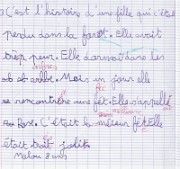 C'est l'histoire d'une fille qui s'était
perdu dans la forêt. Elle avoit
trop peur. Elle dans les
arbre. Mai un jour elle
se rencontra une fée. Elle s'appellé
Rose. C'était la meilleur féé Elle
était trait jolite
Malou 8 ans